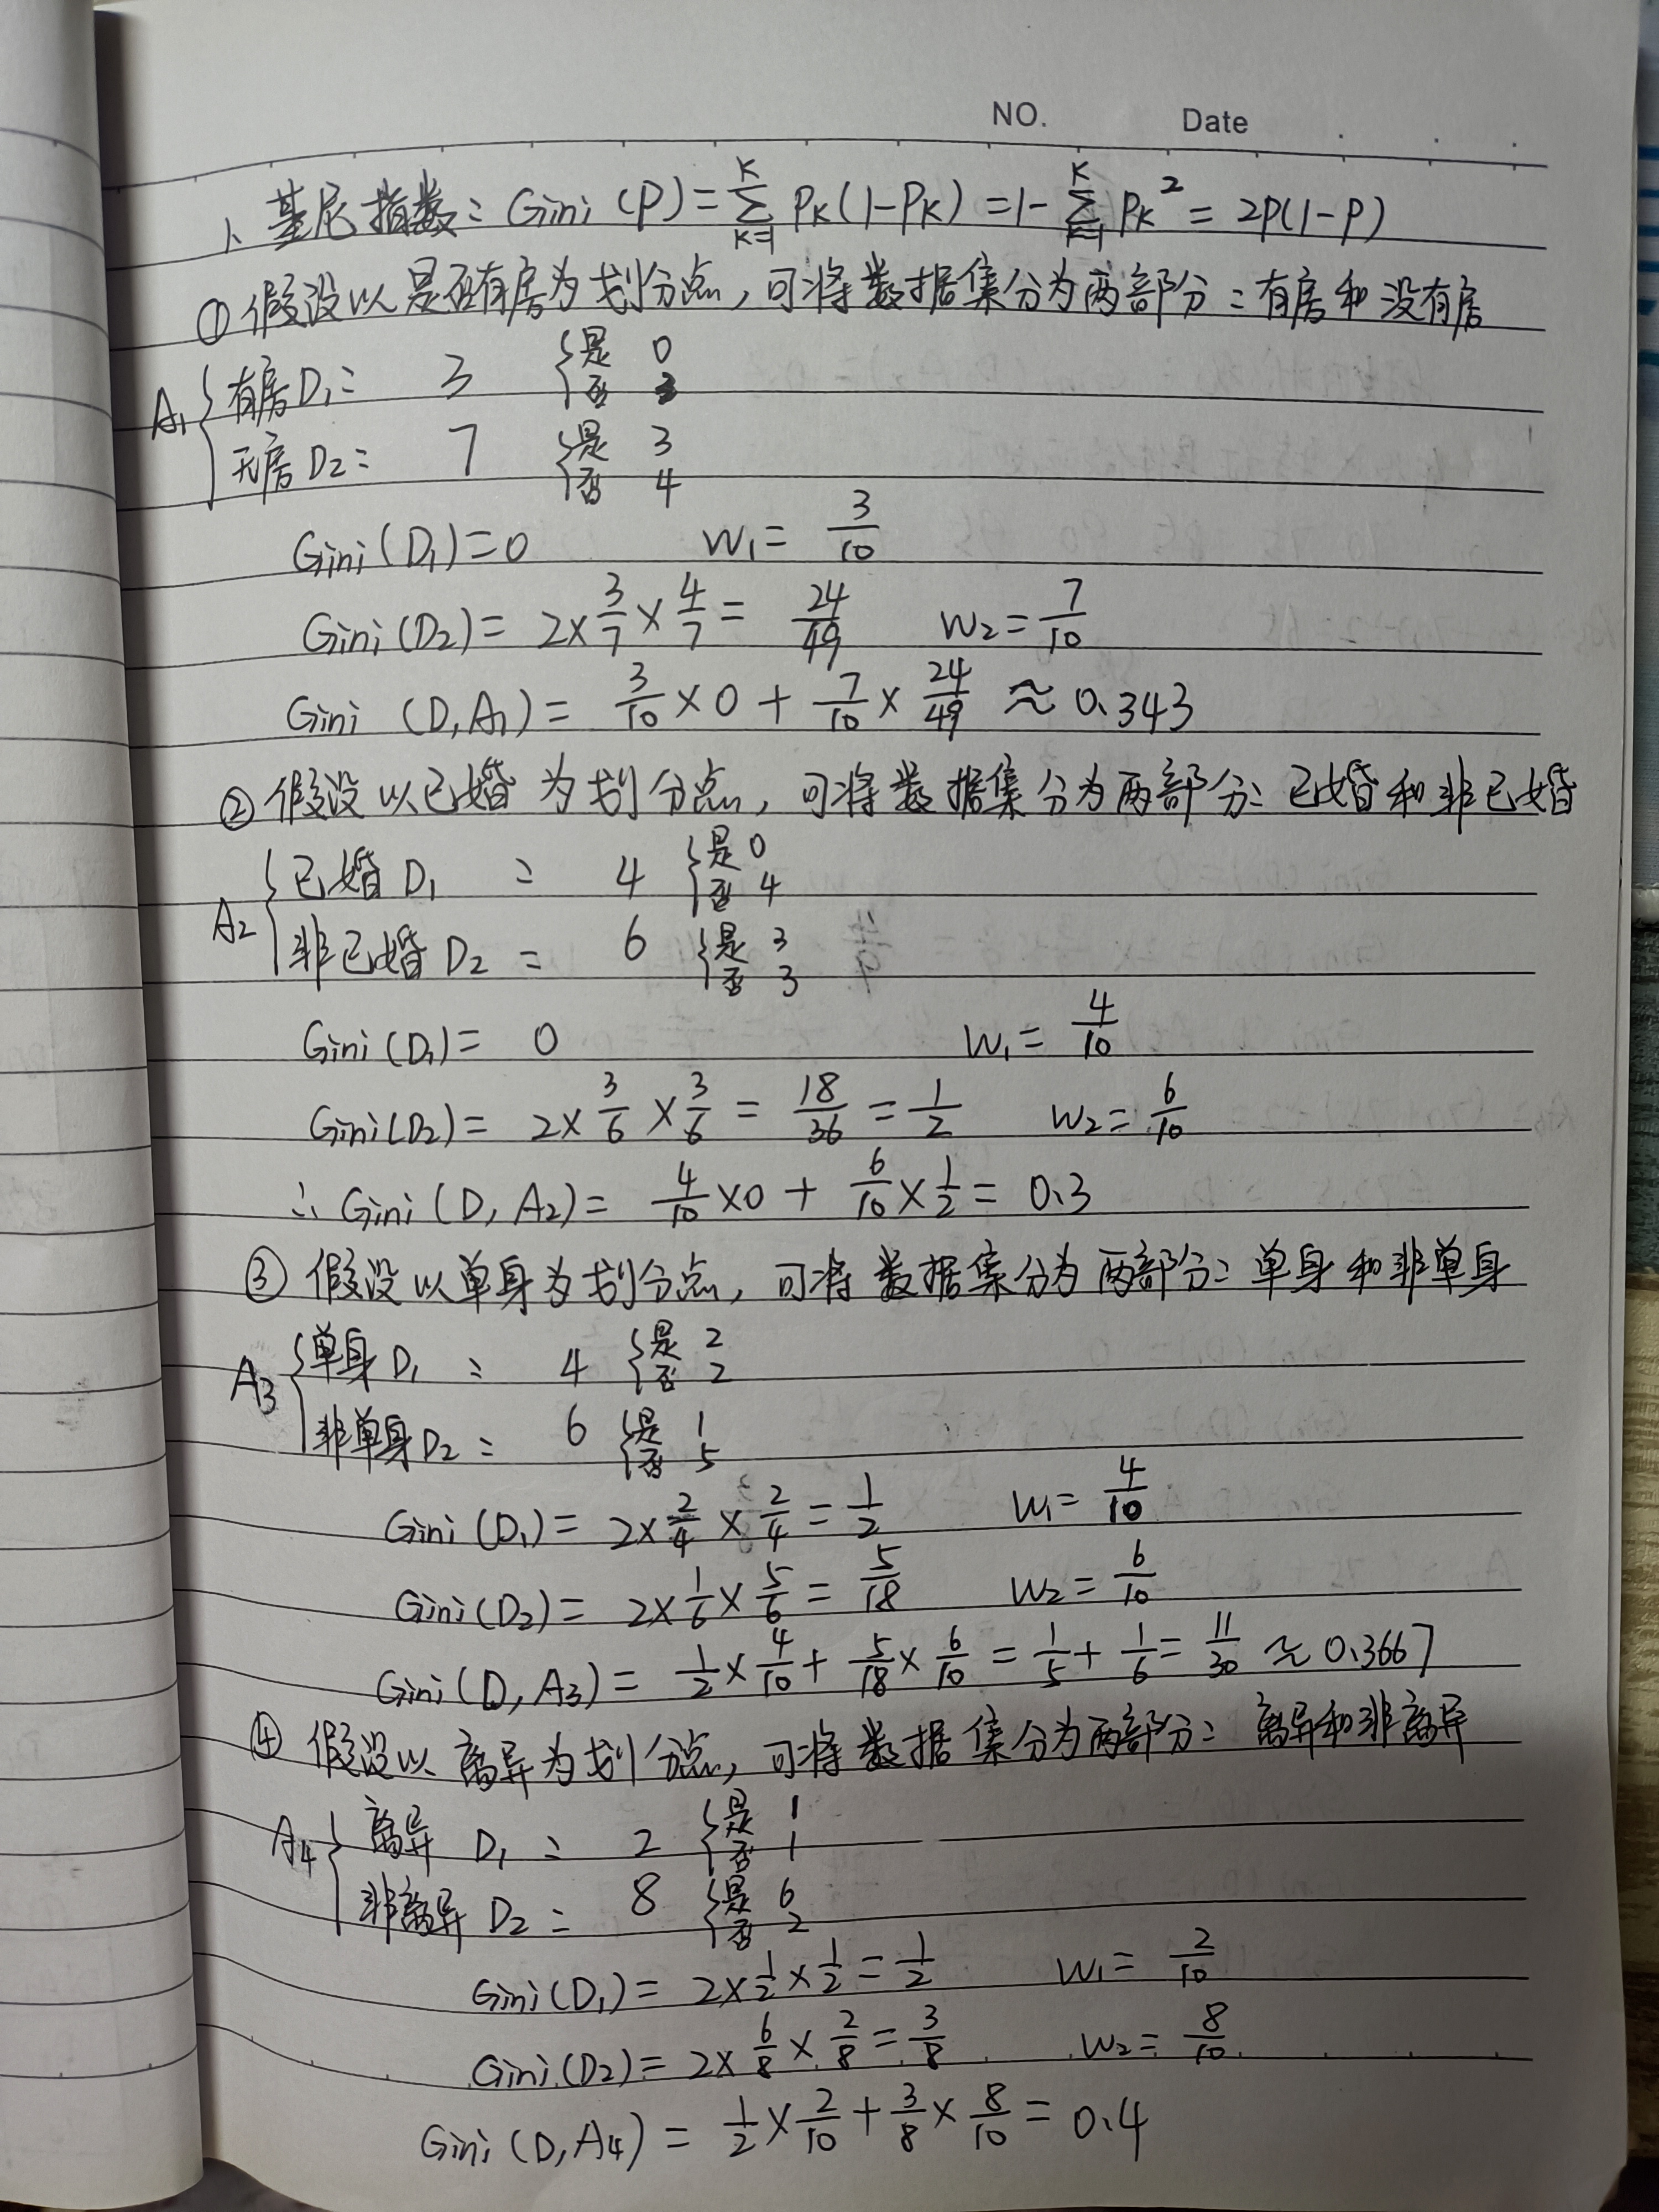 NO. Date
1、基尼指数：Gini (P) = ∑_{K=1}^{K} P_K(1-P_K) = 1- ∑_{K=1}^{K} P_K² = 2P(1-P)
①假设以是否有房为划分点，可将数据集分为两部分：有房和没有房
A₁ { 有房D₁： 3 { 是 0
否 3
无房D₂： 7 { 是 3
否 4
Gini(D₁)=0 W₁= 3/10
Gini(D₂)= 2×3/7×4/7= 24/49 W₂=7/10
Gini (D,A₁)= 3/10×0 + 7/10×24/49 ≈ 0.343
②假设以已婚为划分点，可将数据集分为两部分：已婚和非已婚
A₂ { 已婚D₁ ： 4 { 是 0
否 4
非已婚D₂ ： 6 { 是 3
否 3
Gini(D₁)= 0 W₁= 4/10
Gini(D₂)= 2×3/6×3/6 = 18/36 = 1/2 W₂= 6/10
∴ Gini (D, A₂)= 4/10×0 + 6/10×1/2 = 0.3
③ 假设以单身为划分点，可将数据集分为两部分：单身和非单身
A₃ { 单身D₁ ： 4 { 是 2
否 2
非单身D₂： 6 { 是 1
否 5
Gini(D₁)= 2×2/4×2/4 = 1/2 W₁= 4/10
Gini(D₂)= 2×1/6×5/6 = 5/18 W₂= 6/10
Gini(D, A₃)= 1/2×4/10+ 5/18×6/10 = 1/5+ 1/6= 11/30 ≈ 0.3667
④ 假设以离异为划分点，可将数据集分为两部分：离异和非离异
A₄ { 离异 D₁ ： 2 { 是 1
否 1
非离异D₂： 8 { 是 6
否 2
Gini(D₁)= 2×1/2×1/2=1/2 W₁= 2/10
Gini(D₂)= 2×6/8×2/8=3/8 W₂= 8/10
Gini (D,A₄)= 1/2×2/10+3/8×8/10= 0.4